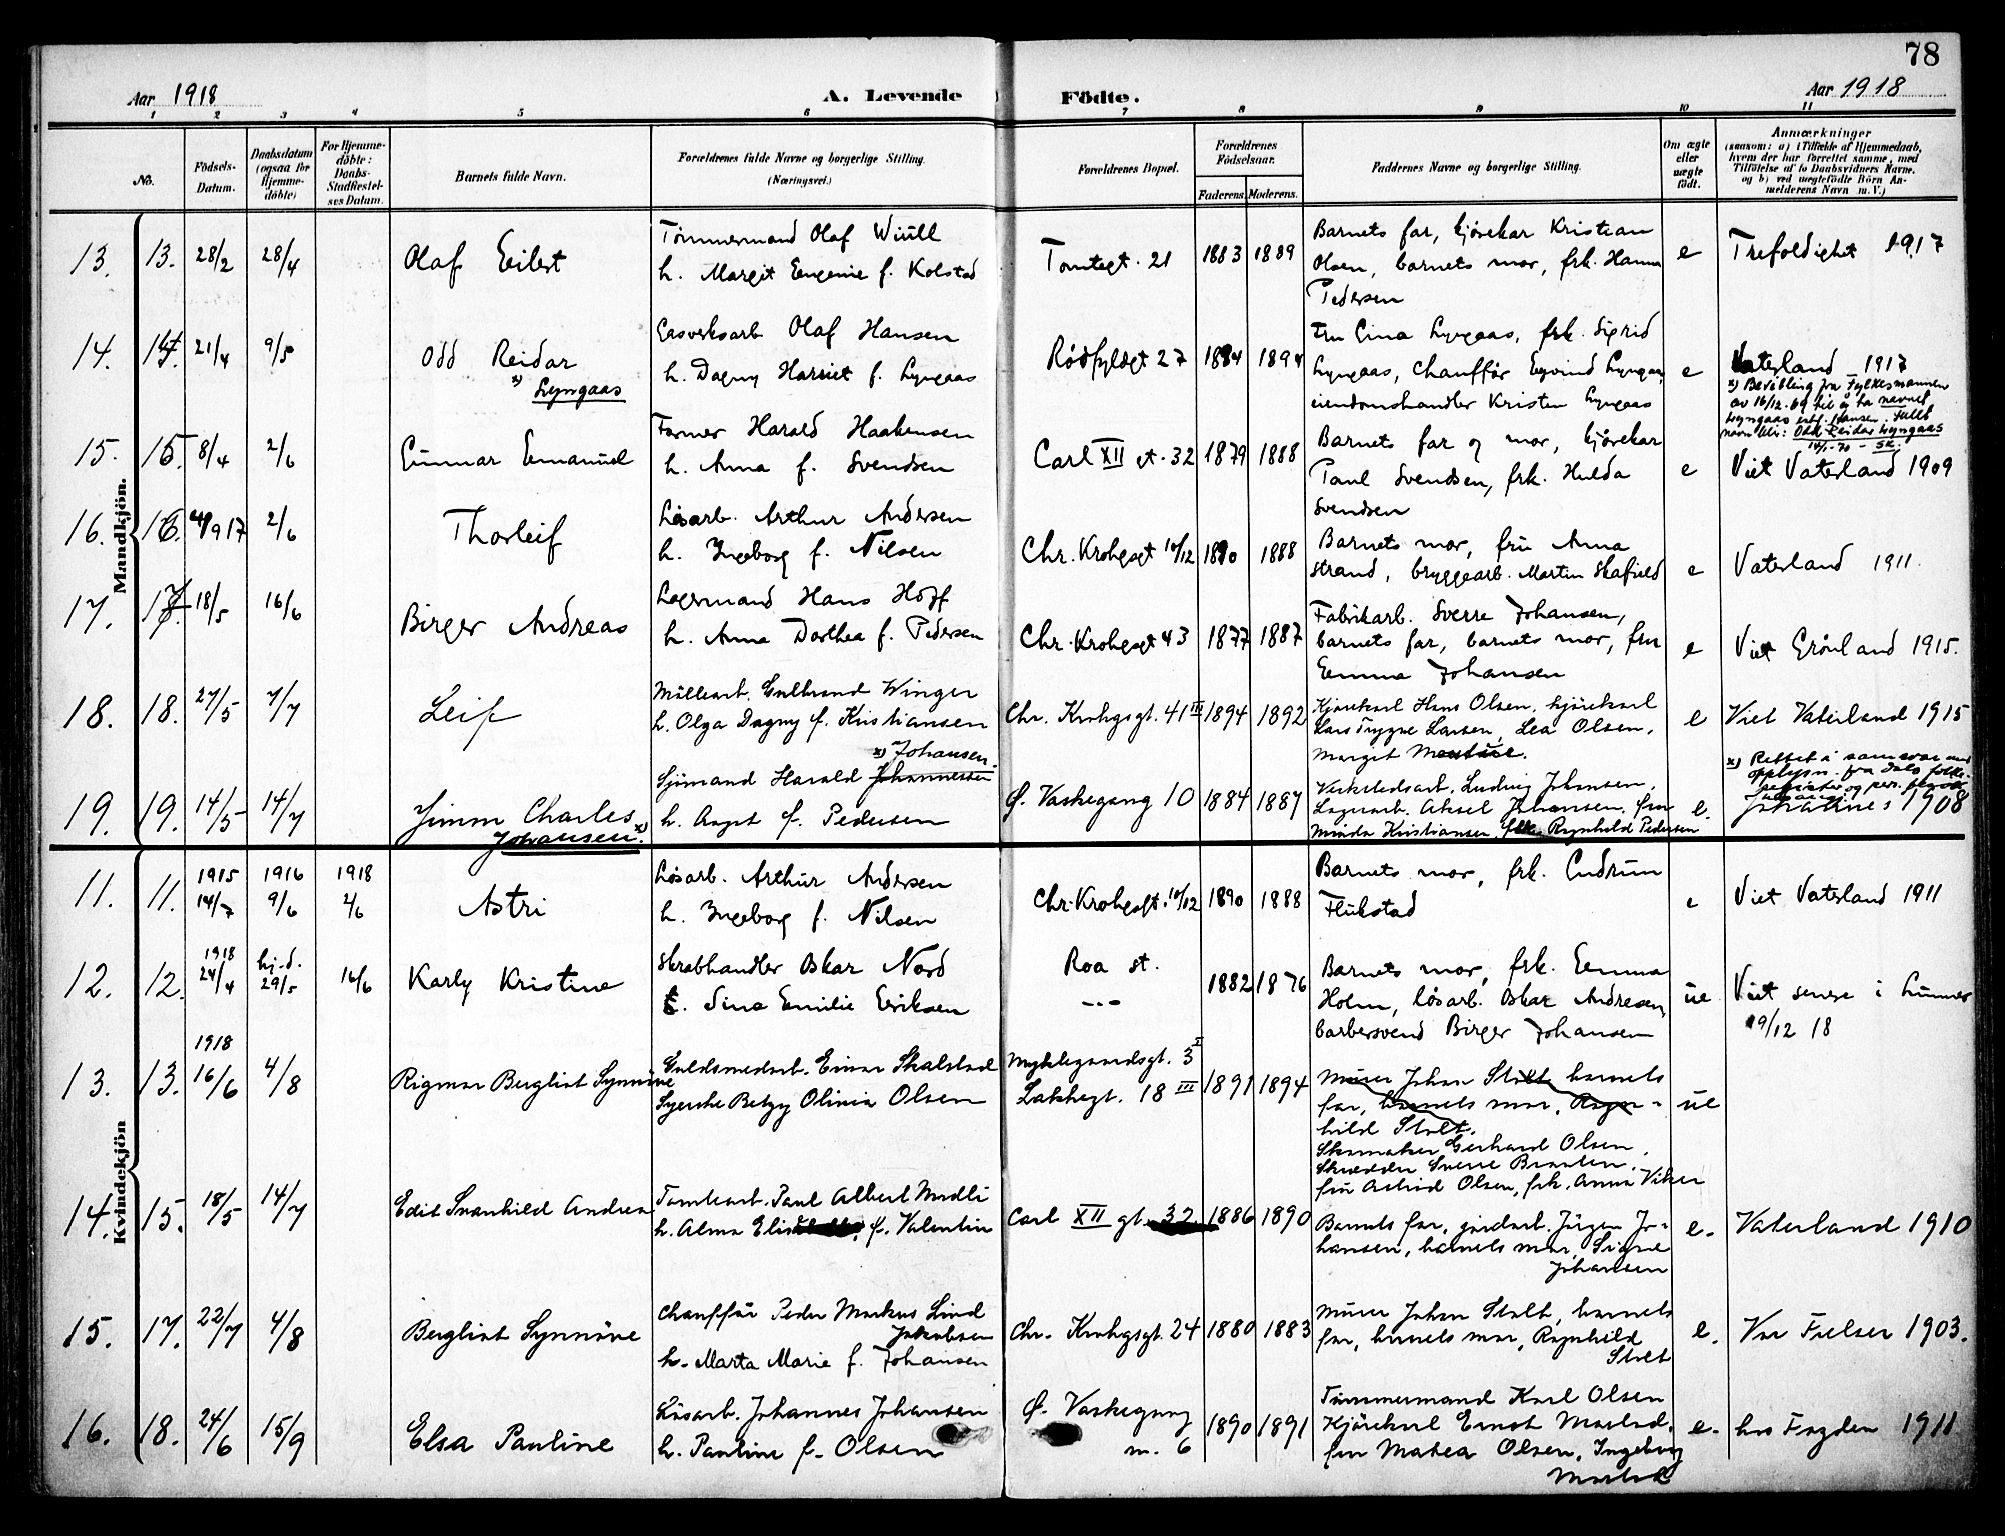 78
Aar 1918
A. Levende Födte.
Aar 1918
1 2 3 4 5 6 7 8 9 10 11
No.
Födsels-Datum.
Daabsdatum (ogsaa for Hjemme-döbte)
For Hjemme-döbte: Daabs-Stadfæstel-ses Datum.
Barnets fulde Navn.
Forældrenes fulde Navne og borgerlige Stilling.
(Næringsvei.)
Forældrenes Bopæl.
Forældrenes Födselsaar.
Faderens. Moderens.
Faddernes Navne og borgerlige Stilling.
Om ægte eller uægte födt.
Anmærkninger
(saasom: a) i Tilfælde af Hjemmedaab, hvem der har forrettet samme, med Tilföielse af to Daabsvidners Navne. og b) ved uægtefödte Börn An-melderens Navn m. V.)
Mandkjön.
13. 13. 28/2 28/4 Olaf Eilert
Tömmermand Olaf Wiull
h. Margit Eugenie f. Kolstad
Tomtegt. 21 1883 1889
Barnets far, kjörekar Kristian
Olsen, barnets mor, frk. Hanna
Pedersen
e Trefoldighet 1917
14. 14. 21/4 9/5 Odd Reidar
x) Lyngaas
Gasverksarb Olaf Hansen
h. Dagny Harriet f. Lyngaas
Rödfyldgt 27 1884 1894
fru Gina Lyngaas, frk. Sigrid
Lyngaas, Chaufför Eyvind Lyngaas,
eiendomshandler Kristen Lyngaas
e Vaterland 1917
x) Bevilling fra Fylkesmannen
av 16/12-69 til å ta navnet
Lyngaas istf. Hansen. Fullt
navn blir: Odd Reidar Lyngaas
14/1-70 - SK.
15. 15. 8/4 2/6 Gunnar Emanuel
Former Harald Haakensen
h. Anna f. Svendsen
Carl XII gt. 32 1879 1888
Barnets far og mor, kjörekar
Paul Svendsen, frk. Hulda
Svendsen
e Viet Vaterland 1909
16. 16. 4/9 17 2/6 Thorleif
Lösarb. Arthur Andersen
h. Ingeborg f. Nilsen
Chr. Krohgsgt 10/12 1890 1888
Barnets mor, fru Anna
Strand, bryggearb. Martin Skafjeld
e Vaterland 1911.
17. 17. 18/5 16/6 Birger Andreas
Lagermand Hans Hoff
h. Anna Dorthea f. Pedersen
Chr. Krohgsgt 43 1877 1887
Fabrikarb. Sverre Johansen,
barnets far, barnets mor, fru
Emma Johansen
e Viet Grönland 1915.
18. 18. 27/5 7/7 Leif
Möllearb. Gulbrand Winger
h. Olga Dagny f. Kristiansen
Chr. Krohgsgt. 41 III 1894 1892
Kjörekarl Hans Olsen, kjörekarl
Lars Trygve Larsen, Lea Olsen,
Margit
e Viet Vaterland 1915
19. 19. 14/5 14/7 Jimm Charles
Johansen. x)
x) Johansen.
Sjömand Harald Johannesen
h. Aagot f. Pedersen
Ø. Vaskegang 10 1884 1887
Verkstedsarb. Ludvig Johansen,
Lagerarb. Aksel Johansen, fru
Minda Kristiansen, frk. Ragnhild Pedersen
e. x) Rettet i samsvar med
opplysn. fra Oslo folke-
register og pers. fgivn.
Johannes 1908
Kvindekjön
11. 11. 1915 14/7 1916 9/6 1918 2/6 Astri
Lösarb. Arthur Andersen
h. Ingeborg f. Nilsen
Chr. Krohgsgt. 10/12 1890 1888
Barnets mor, frk. Gudrun
Flukstad
e Viet Vaterland 1911
12. 12. 1918 24/4 hj.d. 29/5 16/6 Karly Kristine
Skrabhandler Oskar Nord
Sina Emilie Eriksen
Roa st.
-..- 1882 1876
Barnets mor, frk. Emma
Holm, lösarb. Oskar Andresen,
barbersvend Birger Johansen
ue Viet senere i Lunner
19/12 18
13. 13. 1918 16/6 4/8 Rigmor Bergliot Synnöve
Guldsmedarb. Einar Skalstad
Syerske Betzy Olivia Olsen
Myklegaardsgt. 3 I
Lakkegt. 18 III 1891 1894
Murer Johan Stolt, barnets
far, barnets mor, Ragn-
hild Stolt.
Skomaker Gerhard Olsen,
Skrædder Sverre Braaten,
fru Astrid Olsen, frk. Anna Viker
ue
14. 15. 18/5 14/7 Edit Svanhild Andrea
Tomtearb. Paul Albert Modli
h. Alma f. Valentin
Carl XII gt. 32. 1886 1890
Barnets far, gaardarb. Jörgen Jo-
hansen, barnets mor, Signe
Johansen
e. Vaterland 1910
15. 17. 22/7 4/8 Bergliot Synnöve
Chauffør Peder Markus Lind
Jakobsen
h. Marta Marie f. Johansen
Chr. Krohgsgt. 24 1880 1883
Murer Johan Stolt, barnets
far, barnets mor, Ragnhild
Stolt
e. Vor Frelser 1903.
16. 18. 24/6 15/9 Elsa Pauline
Lösarb. Johannes Johansen
h. Pauline f. Olsen
Ø. Vaskegang
m. 6 1890 1891
Tömmermand Karl Olsen
Kjörekarl Ernst
fru Matea Olsen, Ingeborg
e. hos Fogden 1911